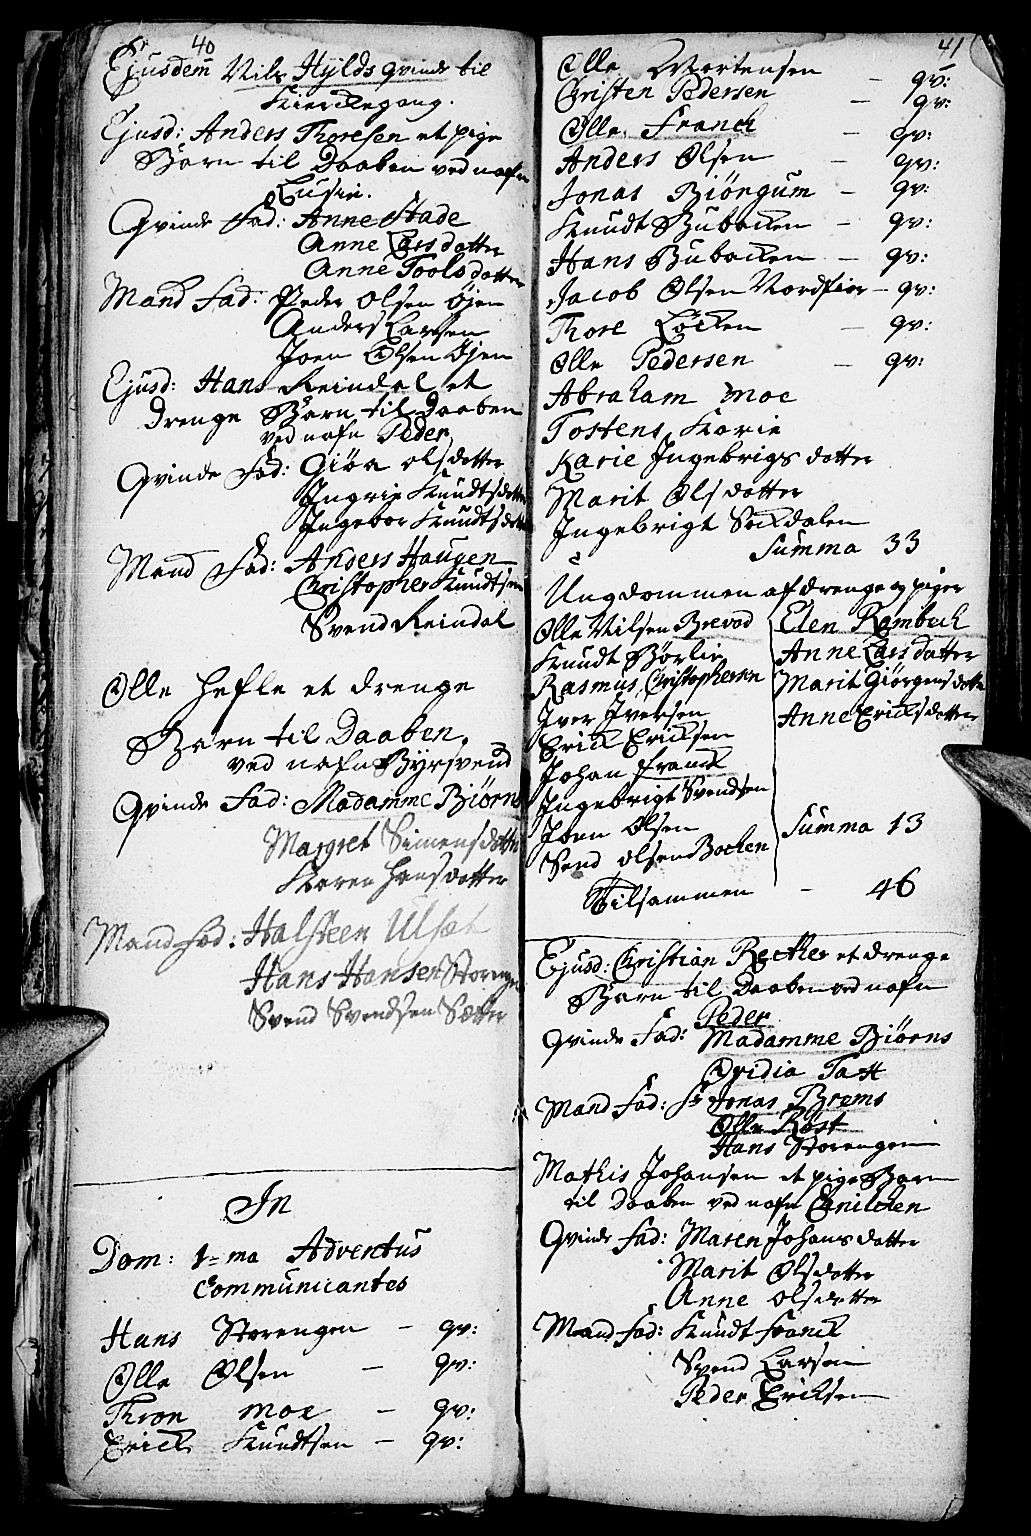 40
Ejusdem Nils Hylds qvinde til
Kierckegang.
Ejusd: Anders Thoresen et pige
Barn til Daaben ved nafn
Lusie.
Qvinde fad: Anne Stade
Anne Larsdatter
Anne Toolsdatter
Mand fad: Peder Olsen Øjen
Anders Larsen
Joen Olsen Øjen
Ejusd: Hans Reindal et
drenge Barn til Daaben
ved nafn Peder
Qvinde fad: Giøa olsdatter
Ingrie Knudtsdatter
Ingebor Knudtsdatter
Mand fad: Anders Haugen
Christopher Knudtsen
Svend Reindal
Olle Hefle et drenge
Barn til Daaben
ved nafn Byrsvend
Qvinde fad: Madamme Biørns
Margret Simensdatter
Karen hansdatter
Mand fad: Halsteen Ulset
Hans Hansen Storengen
Svend Svendsen Sætter
In
Dom: 1=ma Adventus
Communicantes
Hans Storengen – qv:
Olle Olsen – qv:
Thron moe – qv:
Erick Knudtsen – qv:
41
Olle Mortensen – qv:
Christen Pedersen – qv:
Olle Franck – qv:
Anders Olsen – qv:
Jonas Biörgum – qv:
Knudt Bubacken – qv:
Hans Bubacken – qv:
Jacob Olsen Nordfier – qv:
Thore Löcken – qv:
Olle Pedersen – qv:
Abraham moe
Tostens Karie
Karie Ingebrigs datter
Marit Olsdatter
Ingebrigt Sockdalen
Summa 33
Ungdommen af drenge og piger
Olle Nilsen Brevad Elen Rambech
Knudt Börlie Anne Larsdatter
Rasmus Christophersen Marit Giörgensdatter
Iver Iversen Anne Ericksdatter
Erick Ericksen
Johan franck
Ingebrigt Svendsen
Joen Olsen Summa 13
Send olsen Backen
Tilsammen – 46
Ejusd: Christian Reche et drenge
Barn til Daaben ved nafn
Peder
Qvinde fad: Madamme Biørns
Ovidia Tatt
Mand fad: Sr Jonas Brems
Olle Röst
Hans Storengen
Mathis Johansen et pige Barn
til Daaben ved nafn Enilchen
Qvinde fad: Maren Johansdatter
Marit Olsdatter
Anne olsdatter
Mand fad: Knudt franck
Svend Larsen
Peder Ericksen